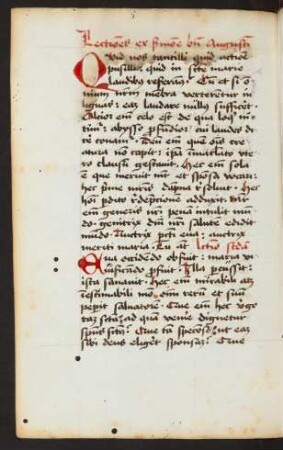 Lectiones ex sermone bti Augusti
Quid nos tantilli quid actione
pusilli, quid in scte marie
laudibus referam. Cum etsi o
mnium nrm membra verterentur in
linguas: eam laudare nullus sufficeret.
Alcior enim celo est de qua loqui ni
timur: abysso profundior cui laudes dice
re conamur. Deum enim quem omnis cre
atura non capit: ipsa immaculato vte
ro clausum gestauit. Hec enim sola
est que meruit mater et sponsa vocari:
hec prime matris dampna resoluit. Hec
homini perdito redemptionem adduxit. Mater
enim generis nri penam intulit mun
do. genitrix domini nri salutem edidit
mundo. Auctrix peccati eua: auctrix
meriti maria. Eua autem Lectio scda
Eua occidendo obfuit: maria vi
uificando profuit. Illa percussit:
ista sanauit. Hec enim mirabili atque
inestimabili modo omnium rerum et suum
peperit saluatorem. Que enim hec virgo
tam sancta: ad quam venire dignetur
spiritus sanctus. Que tam speciosa: ut eam
sibi deus eligeret sponsam. Que